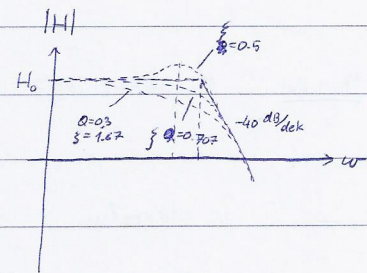 |H|
ξ
=0.5
H₀
Q=0,3
ξ=1.67
ξ =0.707
-40 dB/dek
ω